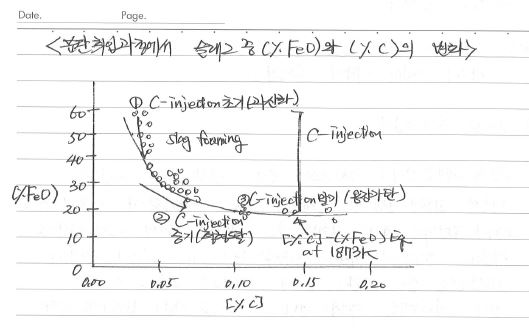 Date. Page.
<분탄취입과정에서 슬래그 중 (%FeO)와 [%C]의 변화>
① C-injection 초기 (과산화)
60
50
40
30
20
10
0
slag foaming
C-injection
(%FeO)
② C-injection
중기
③ C-injection 말기 (용강가탄)
[%C]-(%FeO) Eq
at 1873K
0.00 0.05 0.10 0.15 0.20
[%C]